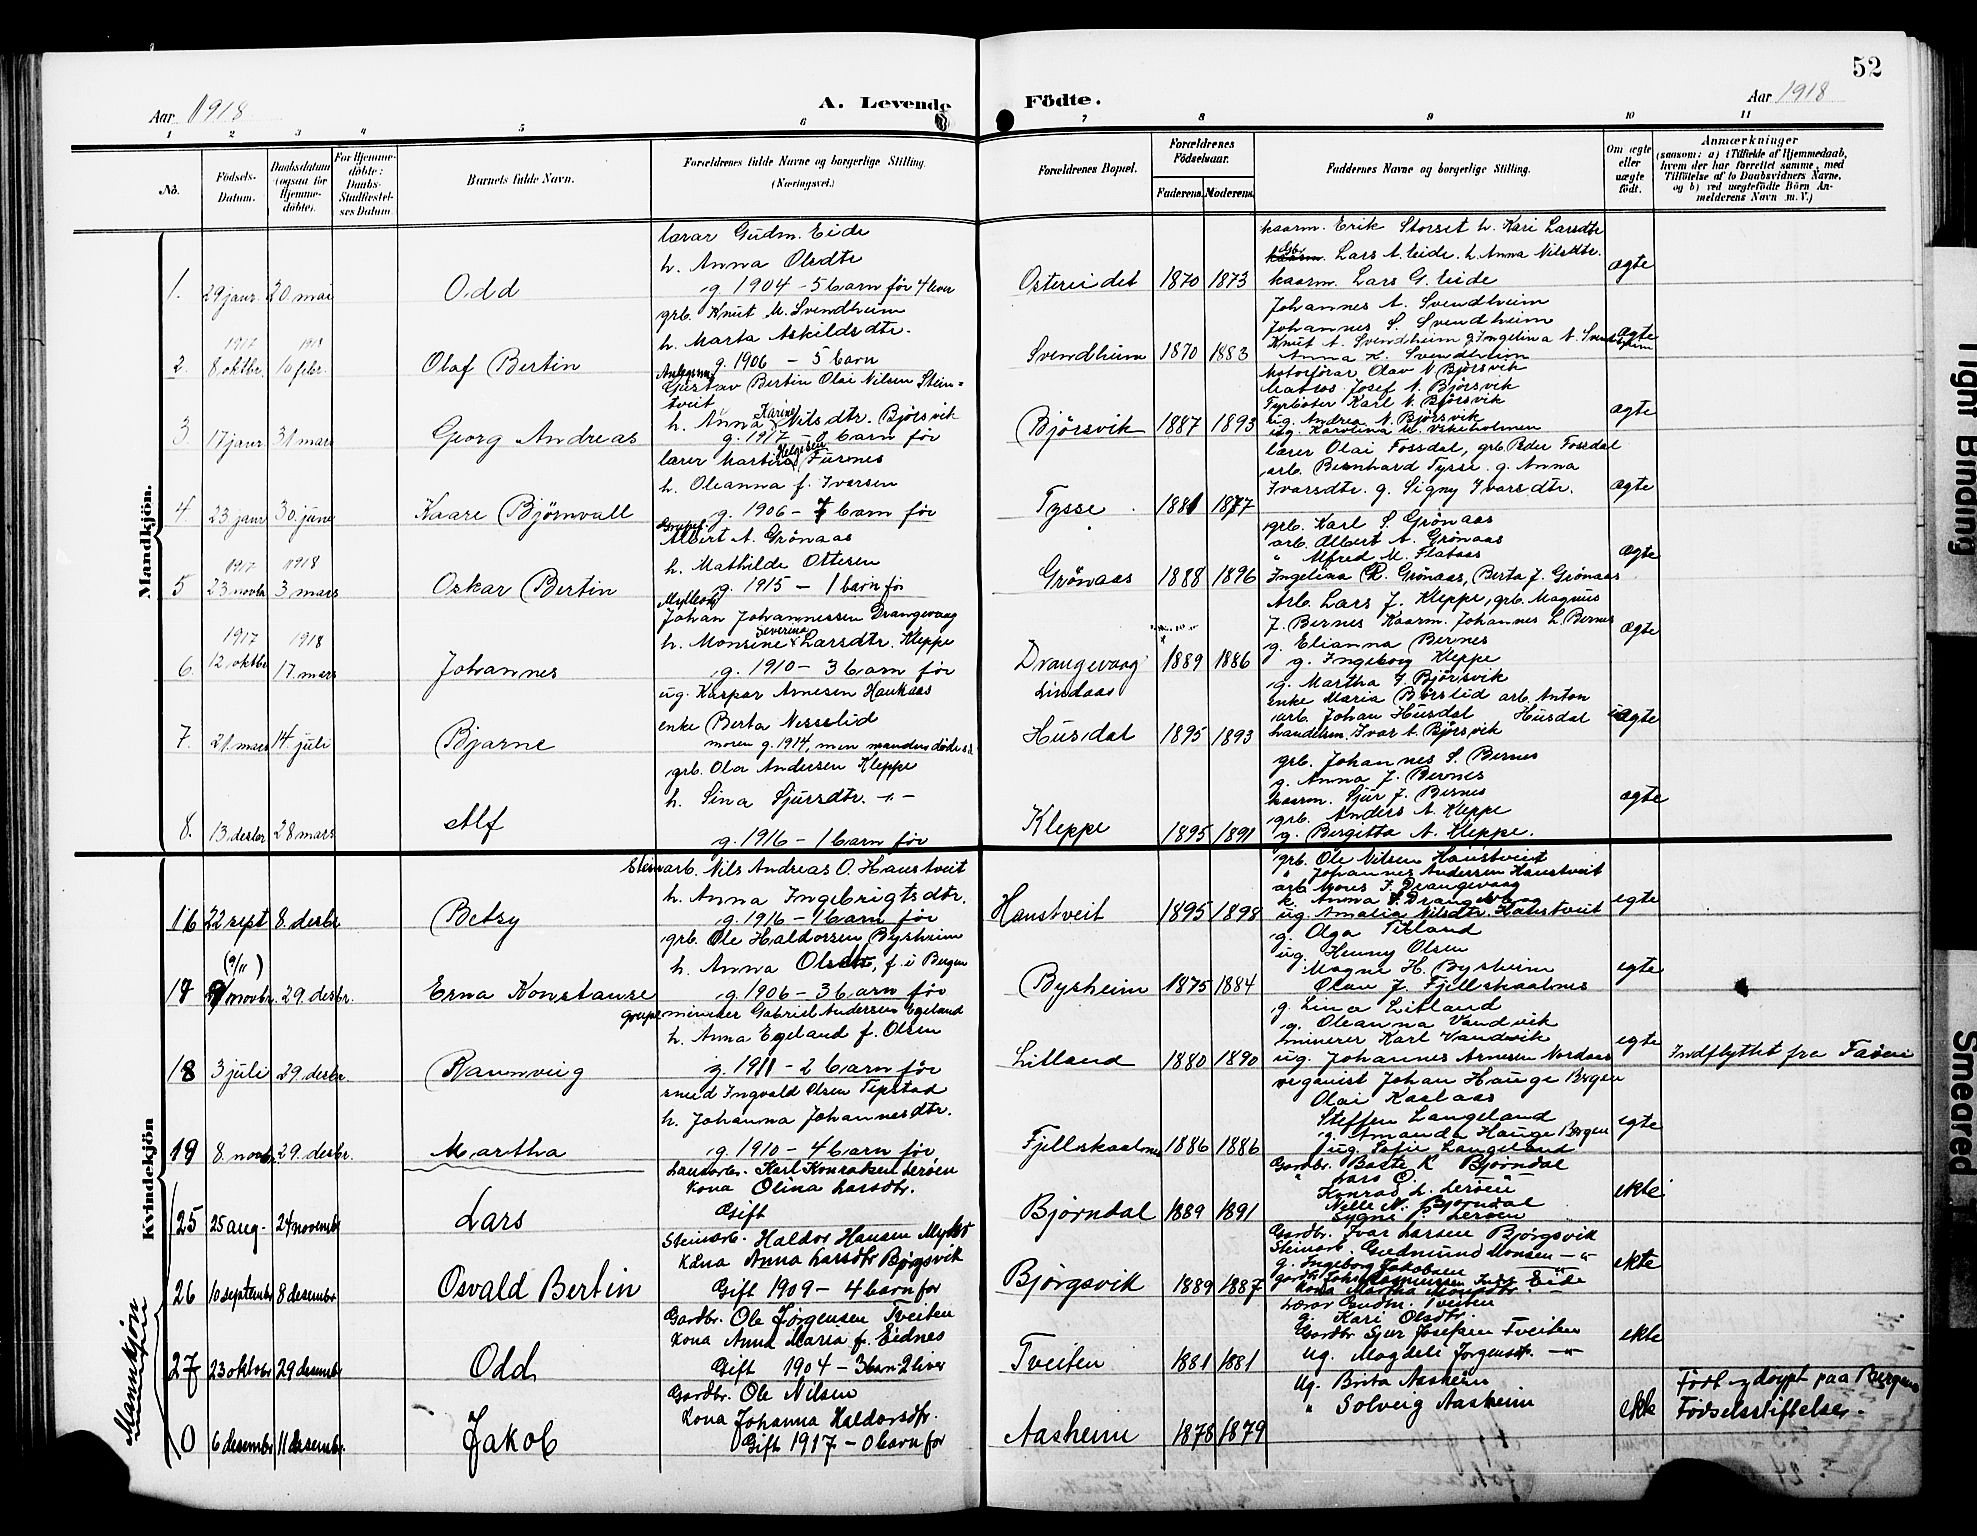 52
Aar 1918
A. Levende Födte.
Aar 1918
1 2 3 4 5 6 7 8 9 10 11
No.
Födsels-Datum.
Daabsdatum (ogsaa for Hjemmedöbte).
For Hjemmedöbte: Daabs-Stadfæstelses Datum.
Barnets fulde Navn.
Forældrenes fulde Navne og borgerlige Stilling. (Næringsvei.)
Forældrenes Bopæl.
Forældrenes Födselsaar.
Faderens. Moderens.
Faddernes Navne og borgerlige Stilling.
Om ægte eller uægte født.
Anmærkninger
(saasom: a) i Tilfælde af Hjemmedaab, hvem der har forrettet samme, med Tilföielse af to Daabsvidners Navne, og b) ved uægtefödte Börn Anmelderens Navn m. V.)
Mandkjön.
lærar Gudm. Eide
h. Anna Olsdtr
1. 29 janr. 20 mai Odd g. 1904 - 5 barn før 4 lever
Ostereidet 1870 1873
kaarm. Erik Storset h. Kari Larsdtr
Gbr. Lars A. Eide. h. Anna Nilsdtr.
kaarm. Lars G. Eide
ægte
grb. Knut M. Svendheim
h. Marta Askildsdtr.
1917 1918
2. 8 oktbr. 10 febr. Olaf Bertin g. 1906 - 5 barn
Svendheim 1870 1883
Johannes A. Svendheim
Johannes S. Svendheim
Knut A. Svendheim g. Ingelina A. Svendheim
Anna K. Svendheim
ægte
Gustav Bertin Olai Nilsen Steintveit
h. Anna Karine Nilsdtr. Bjørsvik
3. 17 janr. 31 mars Georg Andreas g. 1917 - 0 barn før
Bjørsvik 1887 1893
Motorförar Olav N. Bjørsvik
Matros Josef N. Bjørsvik
Fyrbøter Karl N. Bjørsvik
ug. Andrea N. Bjørsvik
ug. Karolina M.
ægte
lærer Martin Helgesen Furnes
h. Oleanna f. Iversen
4. 23 janr 30 june Kaare Bjørnvall g. 1906 - 7 barn før
Tysse 1881 1877
lærer Olai Fossdal, grb. Peder Fossdal
arb. Bernhard Tysse. g. Anna
Ivarsdtr. g. Signy Ivarsdtr.
ægte
Albert A. Grönaas
h. Mathilde Ottesen
1917 1918
5 23 novbr 3 mars Oskar Bertin g. 1915 - 1 barn før
Grönaas 1888 1896
grb. Karl S. Grønaas
arb. Albert A. Grønaas
" Alfred M. Flataas
Ingelina R. Grønaas, Berta J. Grønaas
ægte
Johan Johannessen Drangevaag
h. Monsine Severina Larsdtr. Kleppe
1917 1918
6. 12 oktbr 17. mars Johannes g. 1910 - 3 barn før
Drangevaag Lindaas 1889 1886
Arb. Lars J. Kleppe, grb. Magnus
J. Bernes Kaarm. Johannes L Bernes
g. Elianna Bernes
g. Ingeborg Kleppe
g. Martha J. Bjørsvik
ægte
ug. Kaspar Arnesen Haukaas
enke Berta Nesselid
7. 21. mars 14. juli Bjarne moren g. 1914, men manden døde s.a.
Husdal 1895 1893
enke Maria Børslid arb. Anton
arb. Johan Husdal Husdal
handelsm. Ivar A. Bjørsvik
uægte
grb. Ola Andersen Kleppe
h. Sina Sjursdtr. -"-
8. 13 desbr 28 mars Alf g. 1916 - 1 barn før
Kleppe 1895 1891
grb. Johannes S. Bernes
g. Anna J. Bernes
kaarm. Sjur J. Bernes
grb. Anders A. Kleppe
g. Bergitta A. Kleppe.
ægte
Kvindekjön
Steinarb. Nils Andreas O. Haustveit
h. Anna Ingebrigtsdtr.
16 22 sept 8. desbr Betsy g. 1916 - 1 barn før
Haustveit 1895 1898
grb. Ole Nilsen Haustveit
" Johannes Andersen Haustveit
arb Mons J. Drangevaag
k. Anna S. Drangevaag
ug. Amalia Nilsdtr. Haustveit
egte
grb. Ole Haldorsen Bysheim
h. Anna Olsdtr, f. i Bergen
(9/11)
17 9 novbr. 29. desbr. Erna Konstanse g. 1906 - 3 barn før
Bysheim 1875 1884
g. Olga Titland
ug. Henny Olsen
Magne H. Bysheim
Olav J. Fjellskaalnes
egte
minerer Gabriel Andersen Egeland
h. Anna Egeland f. Olsen
18 3 juli 29 desbr. Rannveig g. 1911 - 2 barn før
Litland 1880 1890
g. Lina Litland
g. Oleanna Vandvik
minerer Karl Vandvik
ug. Johannes Arnesen Nordaas
egte
Indflyttet fra
smed Ingvald Olsen Tepstad
h. Johanna Johannesdtr.
19 8. novbr. 29. desbr. Martha g. 1910 - 4 barn før
Fjellskaalnes 1886 1886
organist Johan Hauge Bergen
Olai Kaslaas
Steffen Langeland
g. Amanda Hauge Bergen
ug. Sofie Langeland
egte
Mannkjön
Karl Konradsen Lerøen
Kona Olina Larsdtr.
25 25 aug. 24 novembr Lars Gift
Bjørndal 1889 1891
Gardbr. Baste K Bjørndal
" Lars O. "
Konrad L. Lerøen
Nille N. Bjørndal
Lerøen
ekte
Steinarb. Haldor Hansen Myking
Kona Anna Larsdtr Bjørgsvik
26 10 septembr 8 desembr Osvald Bertin Gift 1909 - 4 barn før
Bjørgsvik 1889 1887
Gardbr. Ivar Larsen Bjørgsvik
Steinarb. Gudmund Monsen -"-
g. Ingeborg Jakobsen
Eide
Kona Martha Monsdtr. -"-
ekte
Gardbr. Ole Jørgensen Tveiten
Kona Anna Maria f. Eidnes
27 23 oktobr 29 desembr Odd Gift 1904 - 3 barn - 2 liver
Tveiten 1881 1881
Lærar Gudm. Tveiten
g. Kari Olsdtr
Gardbr Sjur Josefsen Tveiten
ug. Magdele Jørgensdtr. -"-
ekte
Gardbr. Ole Nilsen
Kona Johanna Haldorsdtr.
0 6 desembr 11 desembr. Jakob Gift 1917 - 0 barn før
Aasheim 1878 1879
ug. Brita Aasheim
" Solveig Aasheim
ekte
Født og døypt paa Bergens
Fødselsstiftelse.
Tight Binding
Smeared